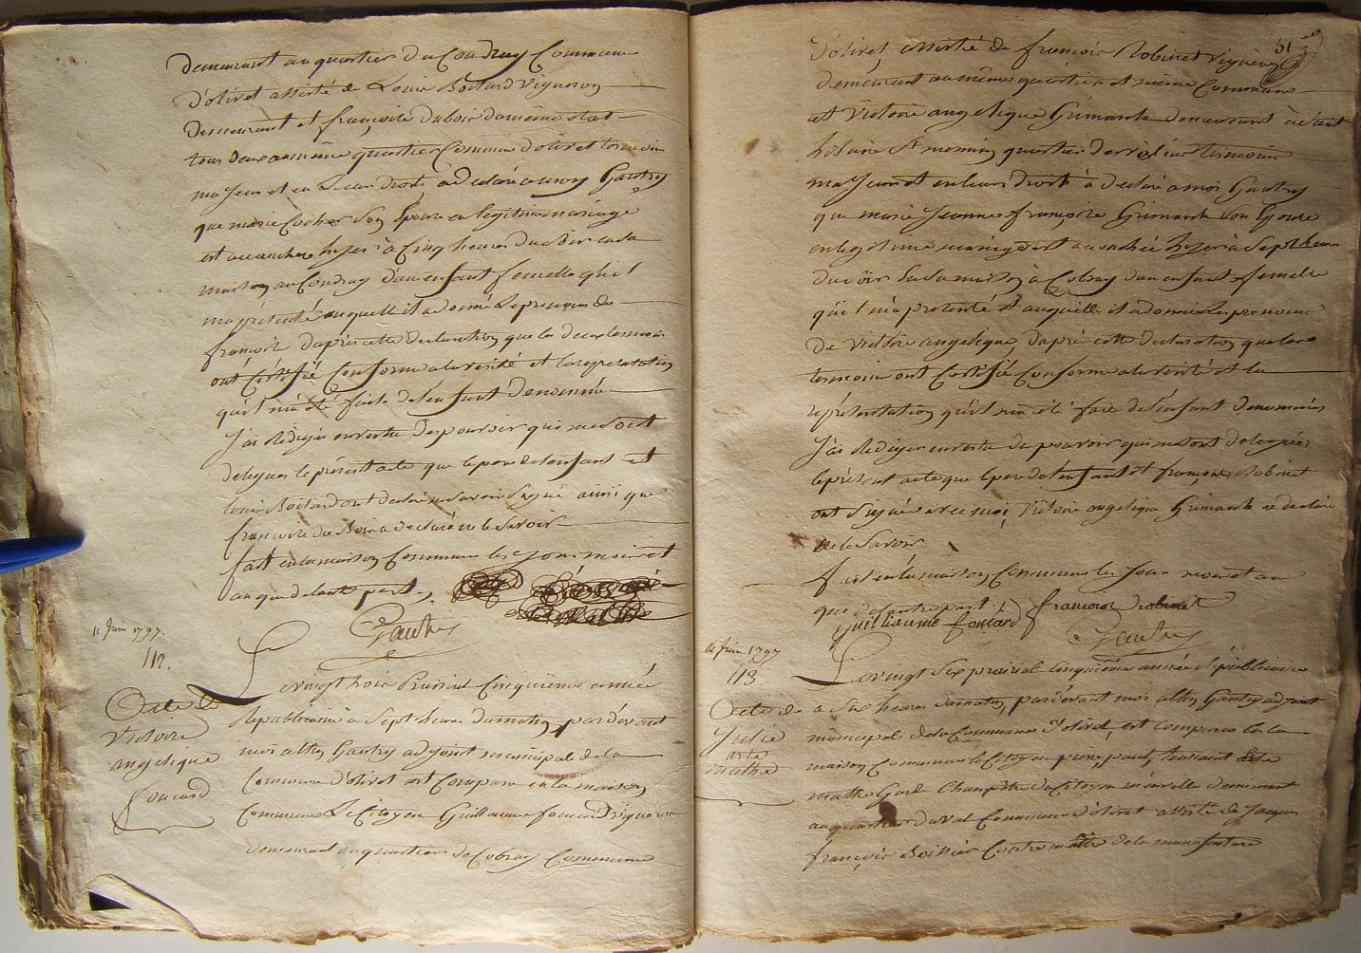 demeurant au quartier du Coudray Commune
d'olivet assisté de Louis Boitard Vigneron
demeurant et françoise duboir du même état
tous deux au même quartier Commune d'olivet temoin
majeur et en Leur droit à déclaré a moy Gautry
que marie Cocher son Epouse en légitime mariage
est accouchée hyer à Cinq heures du soir en sa
maison au Coudray d'un enfant femelle qu'il
m'a présenté auquelle il a donné Le prenom de
françoise d'apres cette declaration que les deux temoins
ont Certifié Conforme a la verité et la representation
qu'il m'a été faite de l'enfant denommé
J'ai Rédigé en vertu des pouvoir qui me sont
delegués le présent acte que le pere de l'enfant et
Louis Boitard ont declaré ne savoir signé ainsi que
françoise du Boir a declaré ne le savoir
fait en la maison Commune les Jour mois et
an que d'autre part
Gautry
11 Juin 1797.
112.
Acte de
Victoire
angelique
foucard
Le vingt trois Prairial Cinquieme année
Republicaine à Sept heures du matin, pardevant
moi altin Gautry adjoint municipal de la
Commune d'olivet est Comparu en la maison
Commune Le Citoyen Guillaume foucard vigneron
demeurant au quartier de Cobray Commune
51
d'olivet assisté de françois Robinet vigneron
demeurant au même quartier et même Commune
et Victoire angelique Grimault demeurant à saint
hilaire St mesmin quartier temoins
majeur et en leur droit à declaré a moi Gautry
que marie Jeanne françoise Grimault son Epouse
en legitime mariage est accouchée hyer à Sept heure
du soir en sa maison à Cobray d'un enfant femelle
qu'il m'a presenté et auquelle il a donné Les prenoms
de Victoire angelique d'après cette declaration que les
temoins ont Certifié Conforme a la verité et la
représentation qu'il m'a été faite de l'enfant denommés
J'ai Rediger en vertu de pouvoir qui me sont delegués
le présent acte que le pere de l'enfant et françois Robinet
ont signé avec moi, Victoire angelique Grimault a declaré
ne le savoir
fait en la maison Commune les Jour mois et an
que d'autre part
Guilliaume foucard françois Robinet
Gautry
14 Juin 1797
113
Acte de
Julie
mathé
Le vingt Six prairial Cinquieme année Republicaine
a Six heures du matin, pardevant moi altin Gautry adjoint
municipal de la Commune d'olivet, est comparu en la
maison Commune le Citoyen
mathé Garde Champetre du Citoyen demeurant
au quartier du Val Commune d'olivet assisté de Jacques
françois Contre maitre de la manufacture